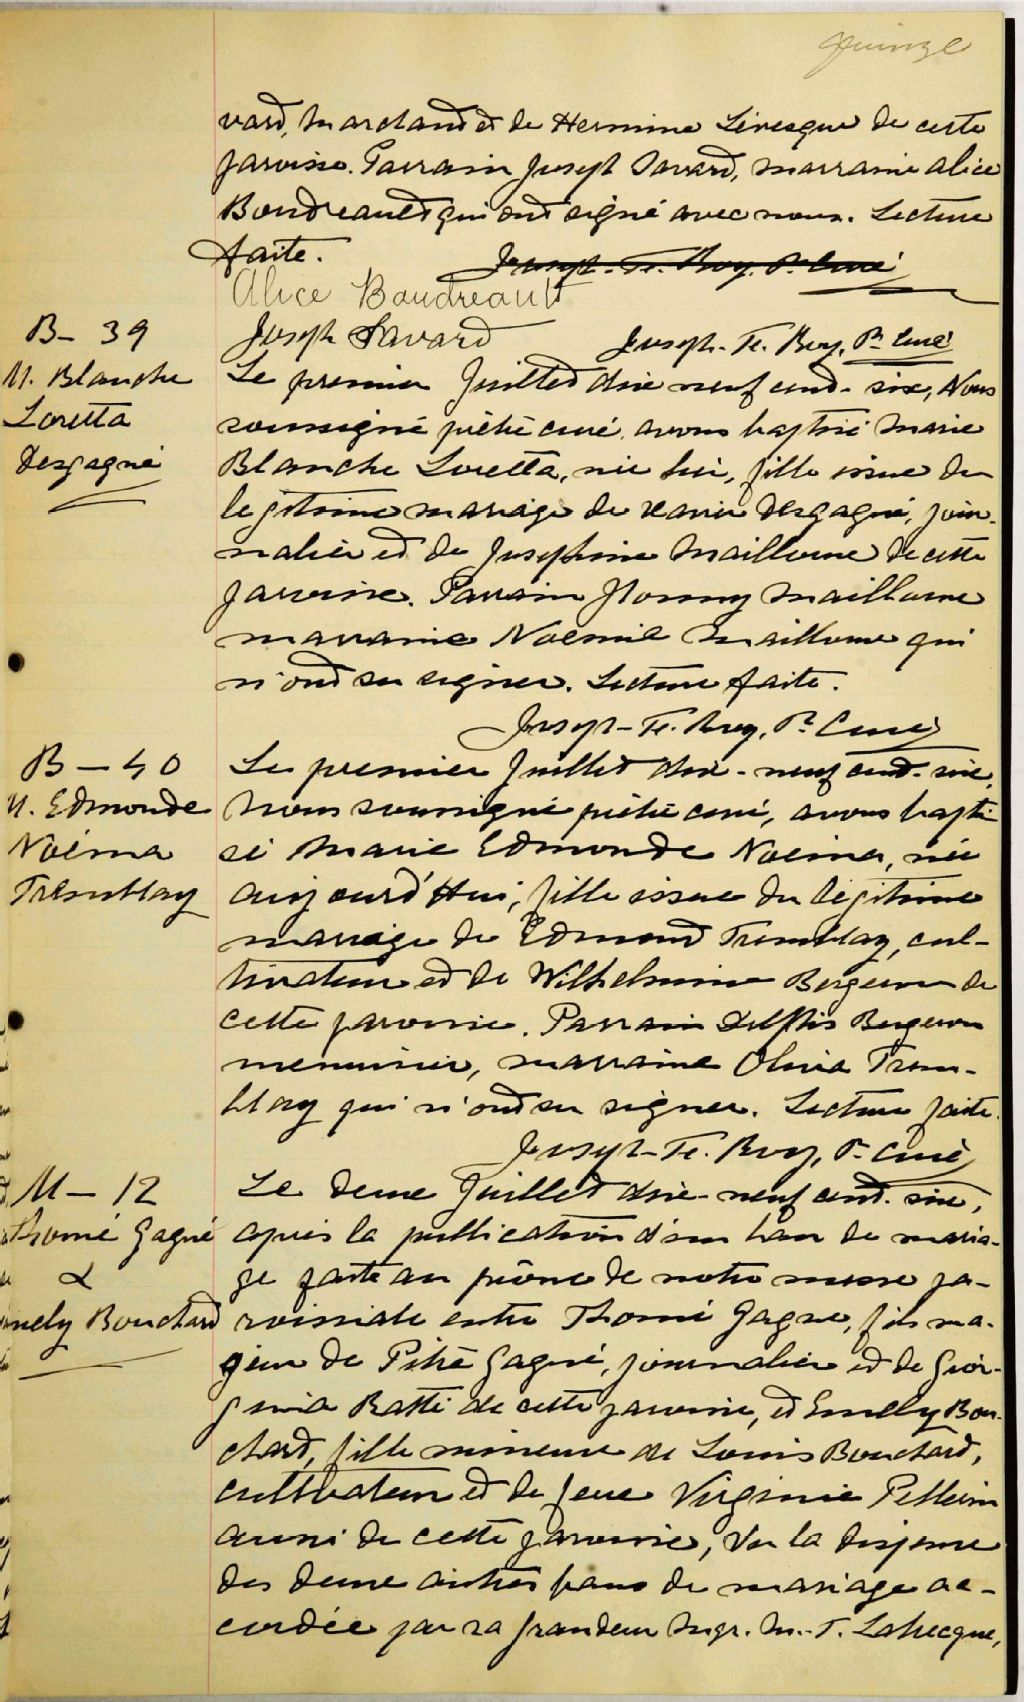 quinze
vard, marchand et de Hermine Lévesque de cette
paroisse. Parrain Joseph Savard, marraine Alice
Boudreault qui ont signé avec nous. Lecture
faite.
Joseph-Te. Roy, Ptre Curé
Alice Boudreault
Joseph Savard
Joseph-Te. Roy, Ptre Curé
B-39
M. Blanche
Loretta
Desgagné
Le premier Juillet dix neuf cent-six, Nous
soussigné prêtre curé, avons baptisé Marie
Blanche Loretta, née hier, fille issue du
légitime mariage de Xavier Desgagné, jour-
nalier et de Josephine Mailloux de cette
paroisse. Parrain Mailloux
marraine Noémie Mailloux qui
n'ont su signer. Lecture faite.
Joseph-Te. Roy, Ptre Curé
B-40
M. Edmonde
Noéma
Tremblay
Le premier Juillet dix-neuf cent-six,
Nous soussigné prêtre curé, avons bapti-
sé Marie Edmonde Noéma, née
aujourd'hui, fille issue du légitime
mariage de Edmond Tremblay, cul-
tivateur et de Wilhelmine Bergeron de
cette paroisse. Parrain Delphis Bergeron
menuisier, marraine Olivia Trem-
blay qui n'ont su signer. Lecture faite.
Joseph-Te. Roy, Ptre Curé
M-12
Thomé Gagné
&
Emely Bouchard
Le deux Juillet dix-neuf cent-six,
après la publication d'un ban de maria-
ge faite au prône de notre messe pa-
roissiale entre Thomé Gagné, fils ma-
jeur de Pitre Gagné, journalier et de Geor-
gina Ratté de cette paroisse, et Emely Bou-
chard, fille mineure de Louis Bouchard,
cultivateur et de feue Virginie Pelletier
aussi de cette paroisse, Vu la dispense
des deux autres bans de mariage ac-
cordée par sa grandeur Mgr. M.-T. Labrecque,